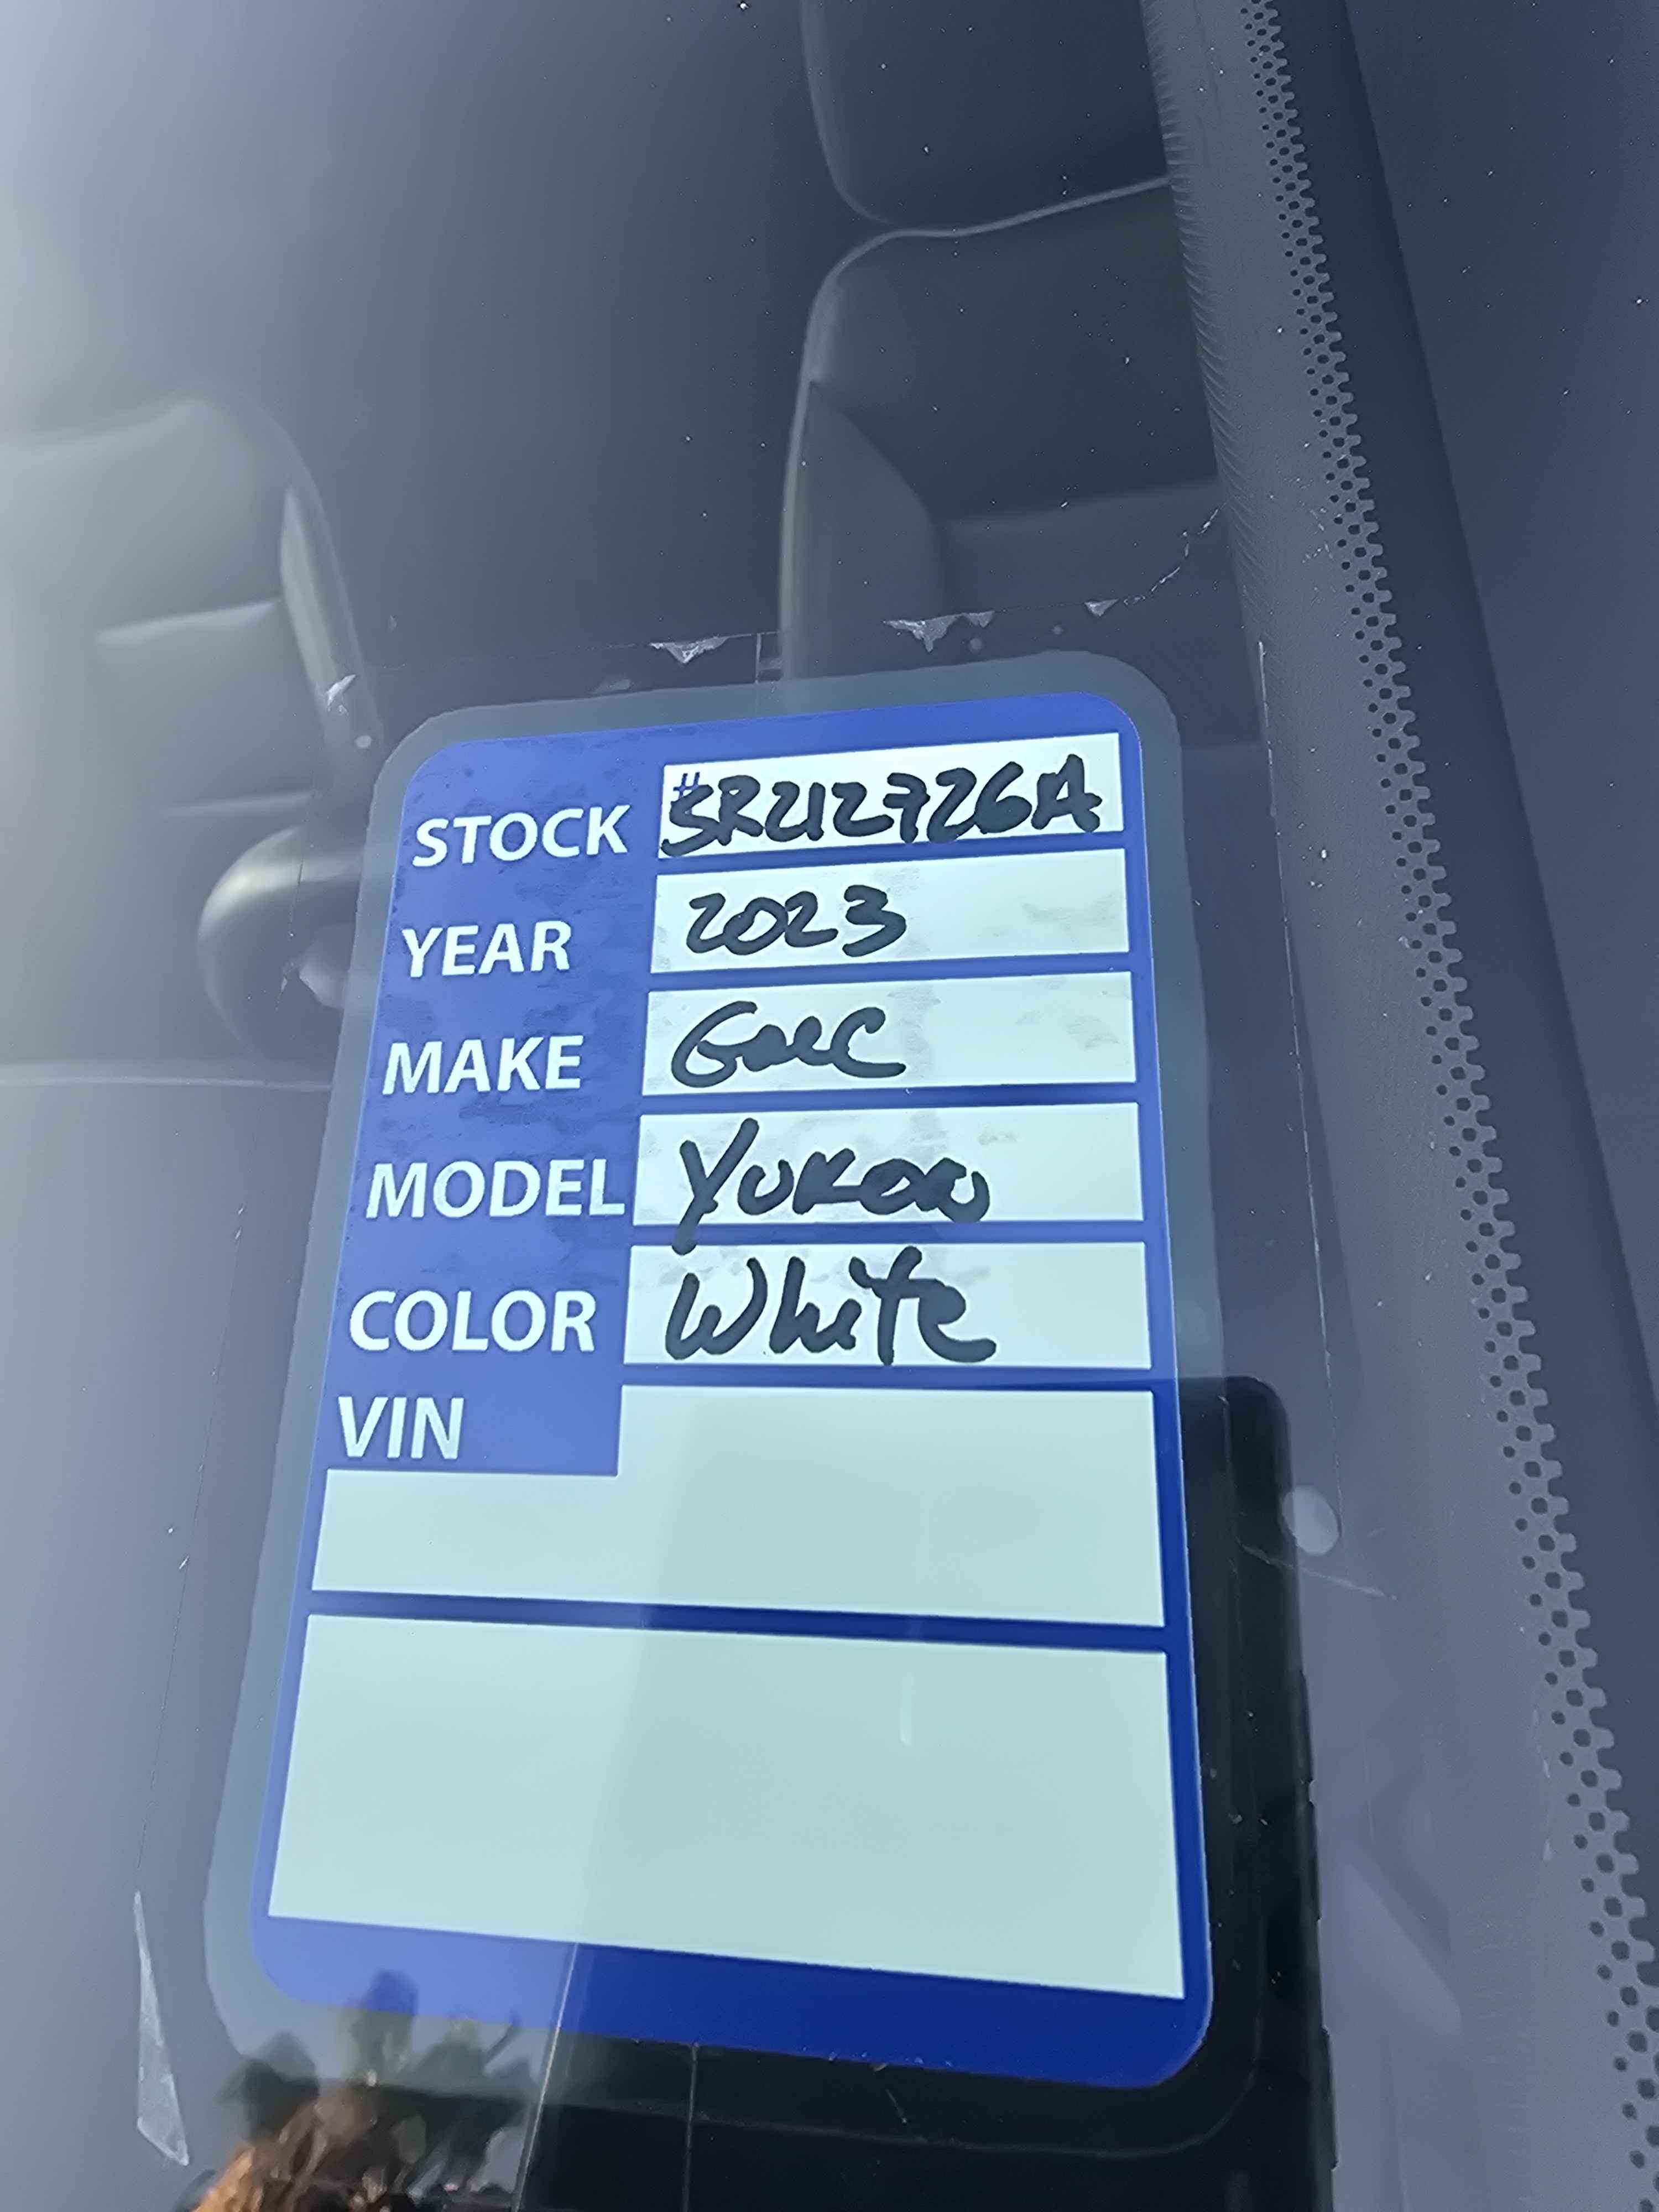 STOCK #SR212726A
YEAR 2023
MAKE GMC
MODEL YUKON
COLOR White
VIN